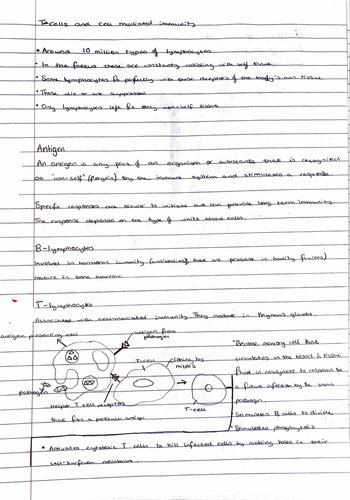 T-cells and cell mediated immunity
• Around 10 million types of lymphocytes
• In the foetus these are constantly colliding with self tissue
• Some lymphocytes fit perfectly into those receptors of the body's own tissue
• These die or are suppressed
• Only lymphocytes left fit only non-self tissue
Antigen
An antigen is any part of an organism or substance that is recognised
as "non-self" (foreign) by the immune system and stimulates a response
Specific responses are slower to initiate but can provide long term immunity.
The response depends on the type of white blood cells.
B-lymphocytes
Involved in humoral immunity (antibodies that are present in bodily fluids)
mature in bone marrow
T-lymphocytes
Associated with cell-mediated immunity. They mature in thymus glands.
antigen presenting cell
antigen from
pathogen
T-cell
cloning by
mitosis
pathogen
Helper T cell receptors
that fits a particular antigen
T-cell
• Become memory cell that
circulates in the blood & tissue
fluid in readiness to respond to
a future infection by the same
pathogen
• Stimulates B cells to divide
• Stimulates phagocytosis
• Activates cytotoxic T cells to kill infected cells by making holes in their
cell-surface membrane